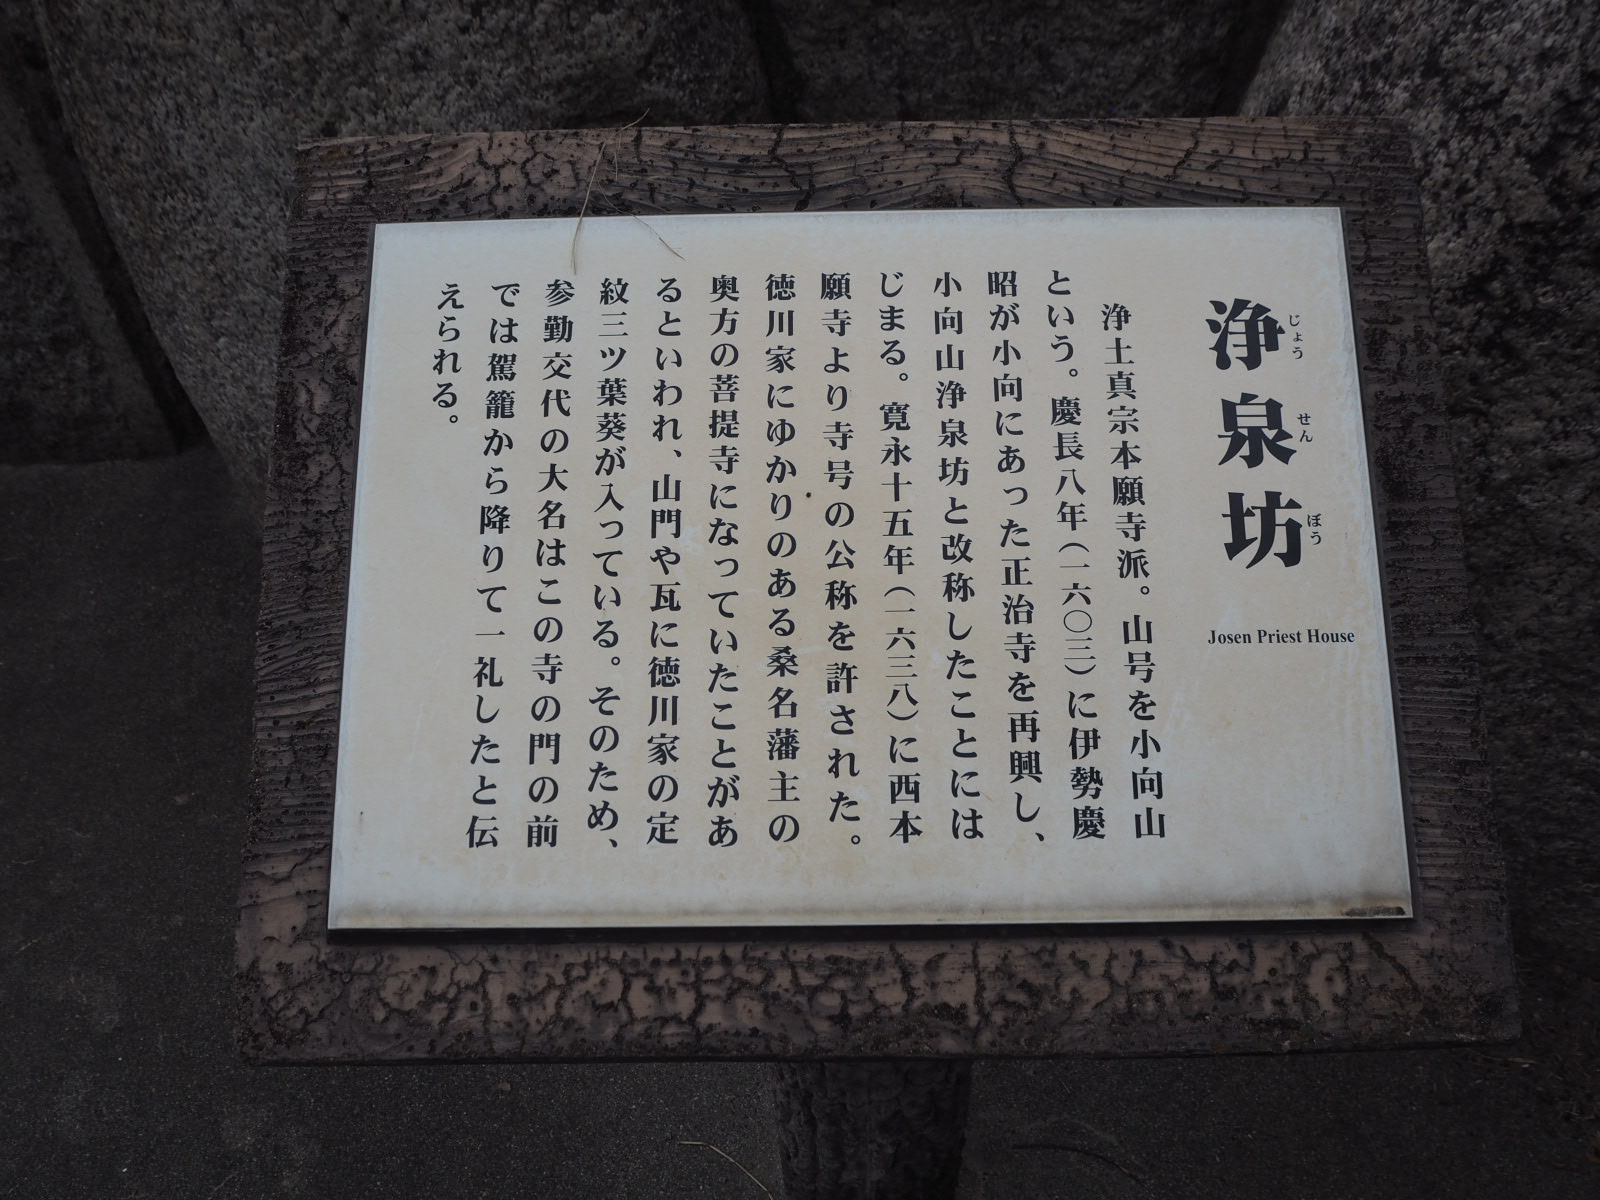 浄泉坊
じょうせんぼう
Josen Priest House
浄土真宗本願寺派。山号を小向山
という。慶長八年（一六〇三）に伊勢慶
昭が小向にあった正治寺を再興し、
小向山浄泉坊と改称したことには
じまる。寛永十五年（一六三八）に西本
願寺より寺号の公称を許された。
徳川家にゆかりのある桑名藩主の
奥方の菩提寺になっていたことがあ
るといわれ、山門や瓦に徳川家の定
紋三ツ葉葵が入っている。そのため、
参勤交代の大名はこの寺の門の前
では駕籠から降りて一礼したと伝
えられる。